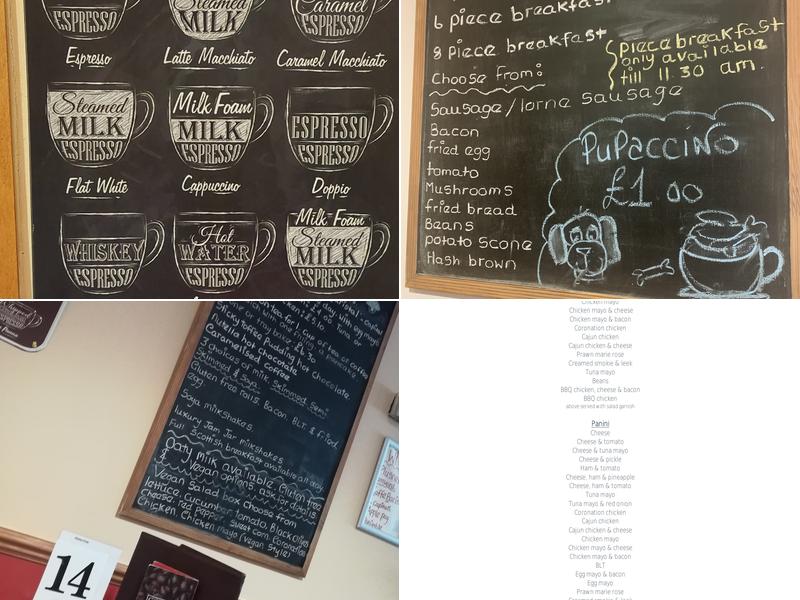 ESPRESSO
Steamed
MILK
ESPRESSO
Caramel
ESPRESSO
Espresso
Latte Macchiato
Caramel Macchiato
Steamed
MILK
ESPRESSO
Milk Foam
MILK
ESPRESSO
ESPRESSO
ESPRESSO
Flat White
Cappuccino
Doppio
WHISKEY
ESPRESSO
Hot
WATER
ESPRESSO
Milk Foam
Steamed
MILK
ESPRESSO
6 piece breakfast
8 piece breakfast
Choose from:
Sausage/lorne sausage
Bacon
fried egg
tomato
Mushrooms
fried bread
Beans
potato scone
Hash brown
piece breakfast
only available
till 11.30 am.
PuPaccino
£1.00
Sticky toffee pudding hot chocolate
Nutella hot chocolate
Caramelised coffee
3 choices of milk, Skimmed, Semi
Skimmed & Soya
Gluten free rolls. Bacon, BLT & fried
egg
Soya milkshakes
luxury Jam Jar milkshakes
Full Scottish breakfast available all day
Oaty milk available. Gluten free
& Vegan options ask for details
Vegan Salad box choose from
lettuce, cucumber, tomato, Black olives
Cheese, red pepper, Sweetcorn, Coronation
Chicken, Chicken mayo (Vegan style)
14
Chicken mayo
Chicken mayo & cheese
Chicken mayo & bacon
Coronation chicken
Cajun chicken
Cajun chicken & cheese
Prawn marie rose
Creamed smokie & leek
Tuna mayo
Beans
BBQ chicken, cheese & bacon
BBQ chicken
above served with salad garnish
Panini
Cheese
Cheese & tomato
Cheese & tuna mayo
Cheese & pickle
Ham & tomato
Cheese, ham & pineapple
Cheese, ham & tomato
Tuna mayo
Tuna mayo & red onion
Coronation chicken
Cajun chicken
Cajun chicken & cheese
Chicken mayo
Chicken mayo & cheese
Chicken mayo & bacon
BLT
Egg mayo & bacon
Egg mayo
Prawn marie rose